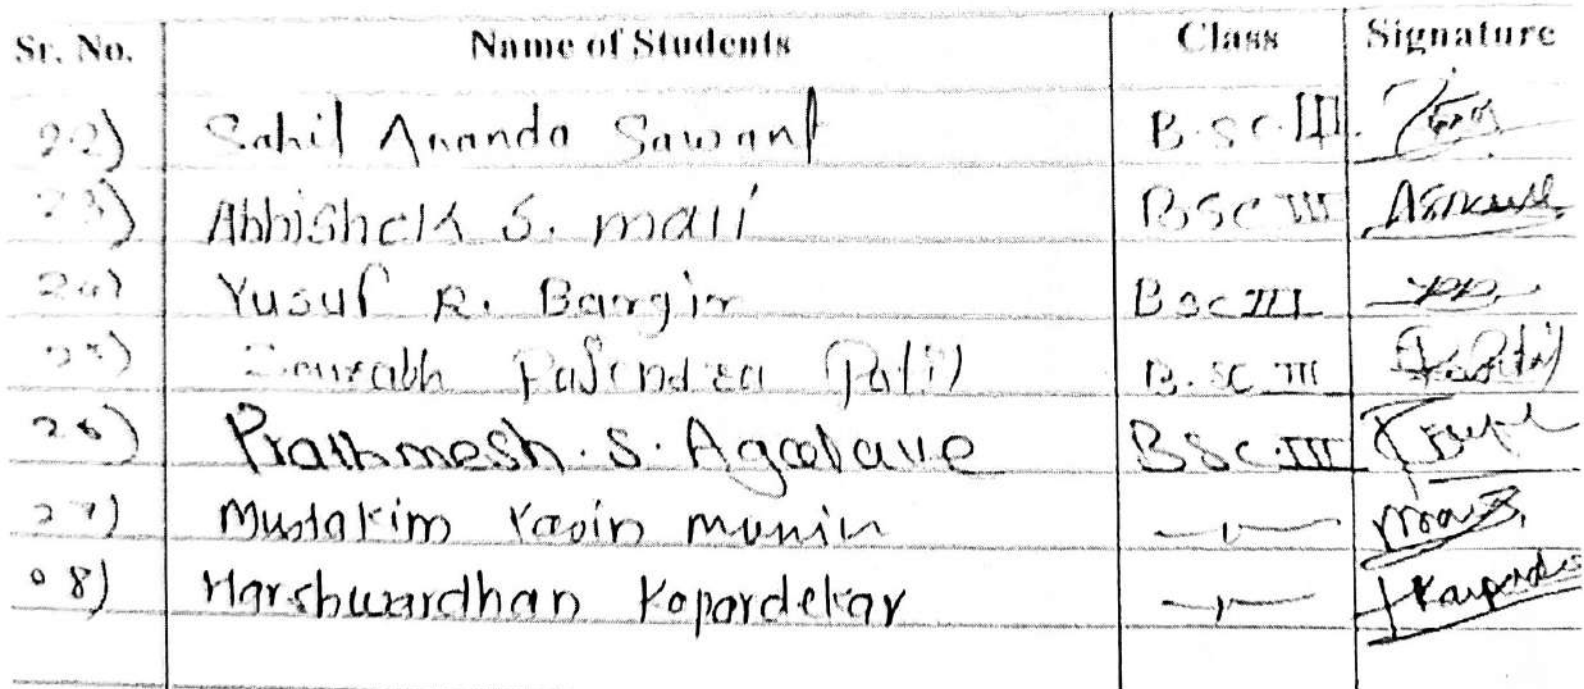 Sr. No. Name of Students Class Signature
22) Sahil Ananda Sawant B.SC.III.
23) Abhishek S. mali BSC III
24) Yusuf R. Bargir BSC III
25) Sourabh Rajendra Patil B.SC III
26) Prathmesh.S. Agalave BSC.III
27) Mustakim Yasin munir —〃—
28) Harshwardhan Kopardekar —〃—